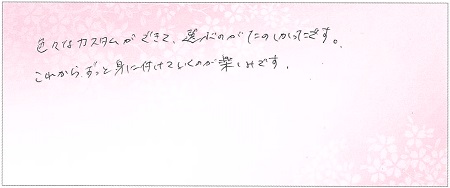 色々なカスタムができて、選ぶのがたのしかったです。
これからずっと身に付けていくのが楽しみです。